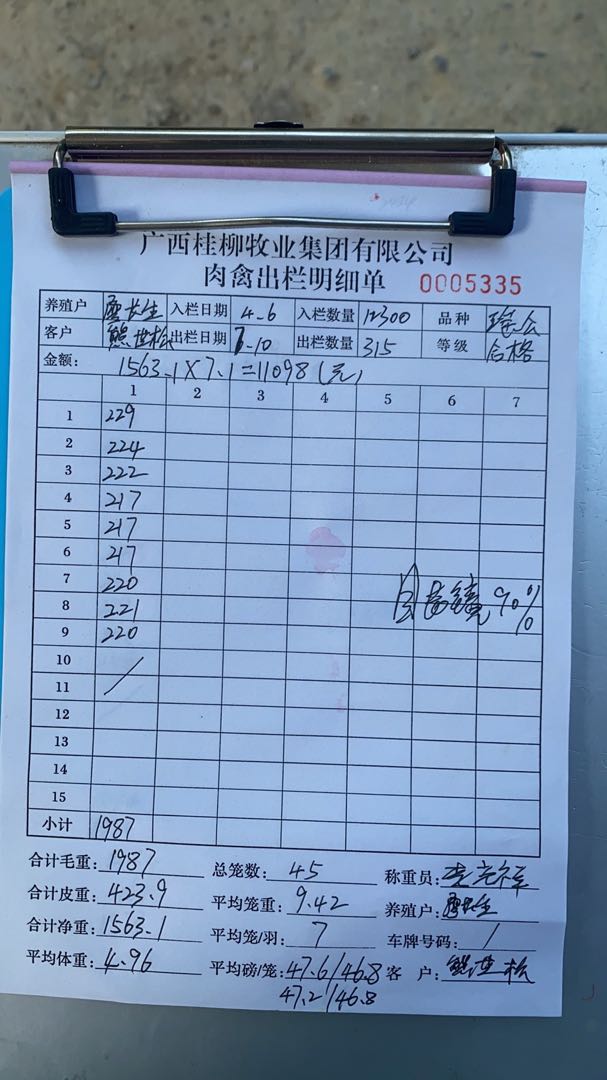 广西桂柳牧业集团有限公司
肉禽出栏明细单 0005335
养殖户 廖长生 入栏日期 4.6 入栏数量 12300 品种 瑶公
客户 熊世松 出栏日期 7.10 出栏数量 315 等级 合格
金额: 1563.1×7.1=11098(元)
1 2 3 4 5 6 7
1 229
2 224
3 222
4 217
5 217
6 217
7 220
8 221 90%
9 220
10
11
12
13
14
15
小计 1987
合计毛重: 1987 总笼数: 45 称重员:
合计皮重: 423.9 平均笼重: 9.42 养殖户: 廖长生
合计净重: 1563.1 平均笼/羽: 7 车牌号码: /
平均体重: 4.96 平均磅/笼: 47.6/46.8 客 户: 熊世松
47.2/46.8